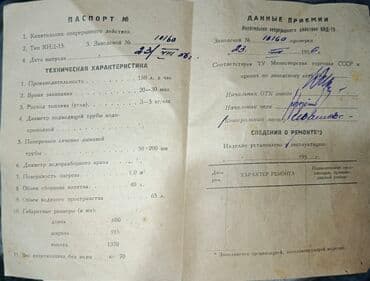 ПАСПОРТ №
1. Кипятильник непрерывного действия.
2. Тип КНД-15. Заводской № 10160
4. Дата выпуска 23/VIII 56 г.
ТЕХНИЧЕСКАЯ ХАРАКТЕРИСТИКА
1. Производительность 150 л. в час
2. Время закипания 20—30 мин.
3. Расход топлива (угля) 3—5 кг/час
4. Диаметр подводящей трубы водо-
проводной
5. Поперечное сечение дымовой
трубы 50×200 мм
6. Диаметр водоразборного крана
7. Поверхность нагрева 1,0 м²
8. Объем сборника кипятка 40 л.
9. Объем водяного пространства 65 л.
10. Габаритные размеры (в мм):
длина 680
ширина 515
высота 1350
11. Вес кипятильника, без воды кг. 70
ДАННЫЕ ПРИЕМКИ
Кипятильник непрерывного действия КНД-15.
Заводской № 10160 проверен
23 VIII 1956 г.
Соответствует ТУ Министерства торговли СССР и
принят по
Начальник ОТК завода
Начальник цеха
Контрольный мастер
СВЕДЕНИЯ О РЕМОНТЕ*)
Изделие установлено в эксплуатацию
195 г.
Дата рем.
ХАРАКТЕР РЕМОНТА
* Заполняется организацией, эксплоатирующей изделие.